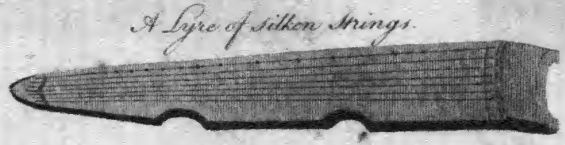 A Lyre of silken Strings.